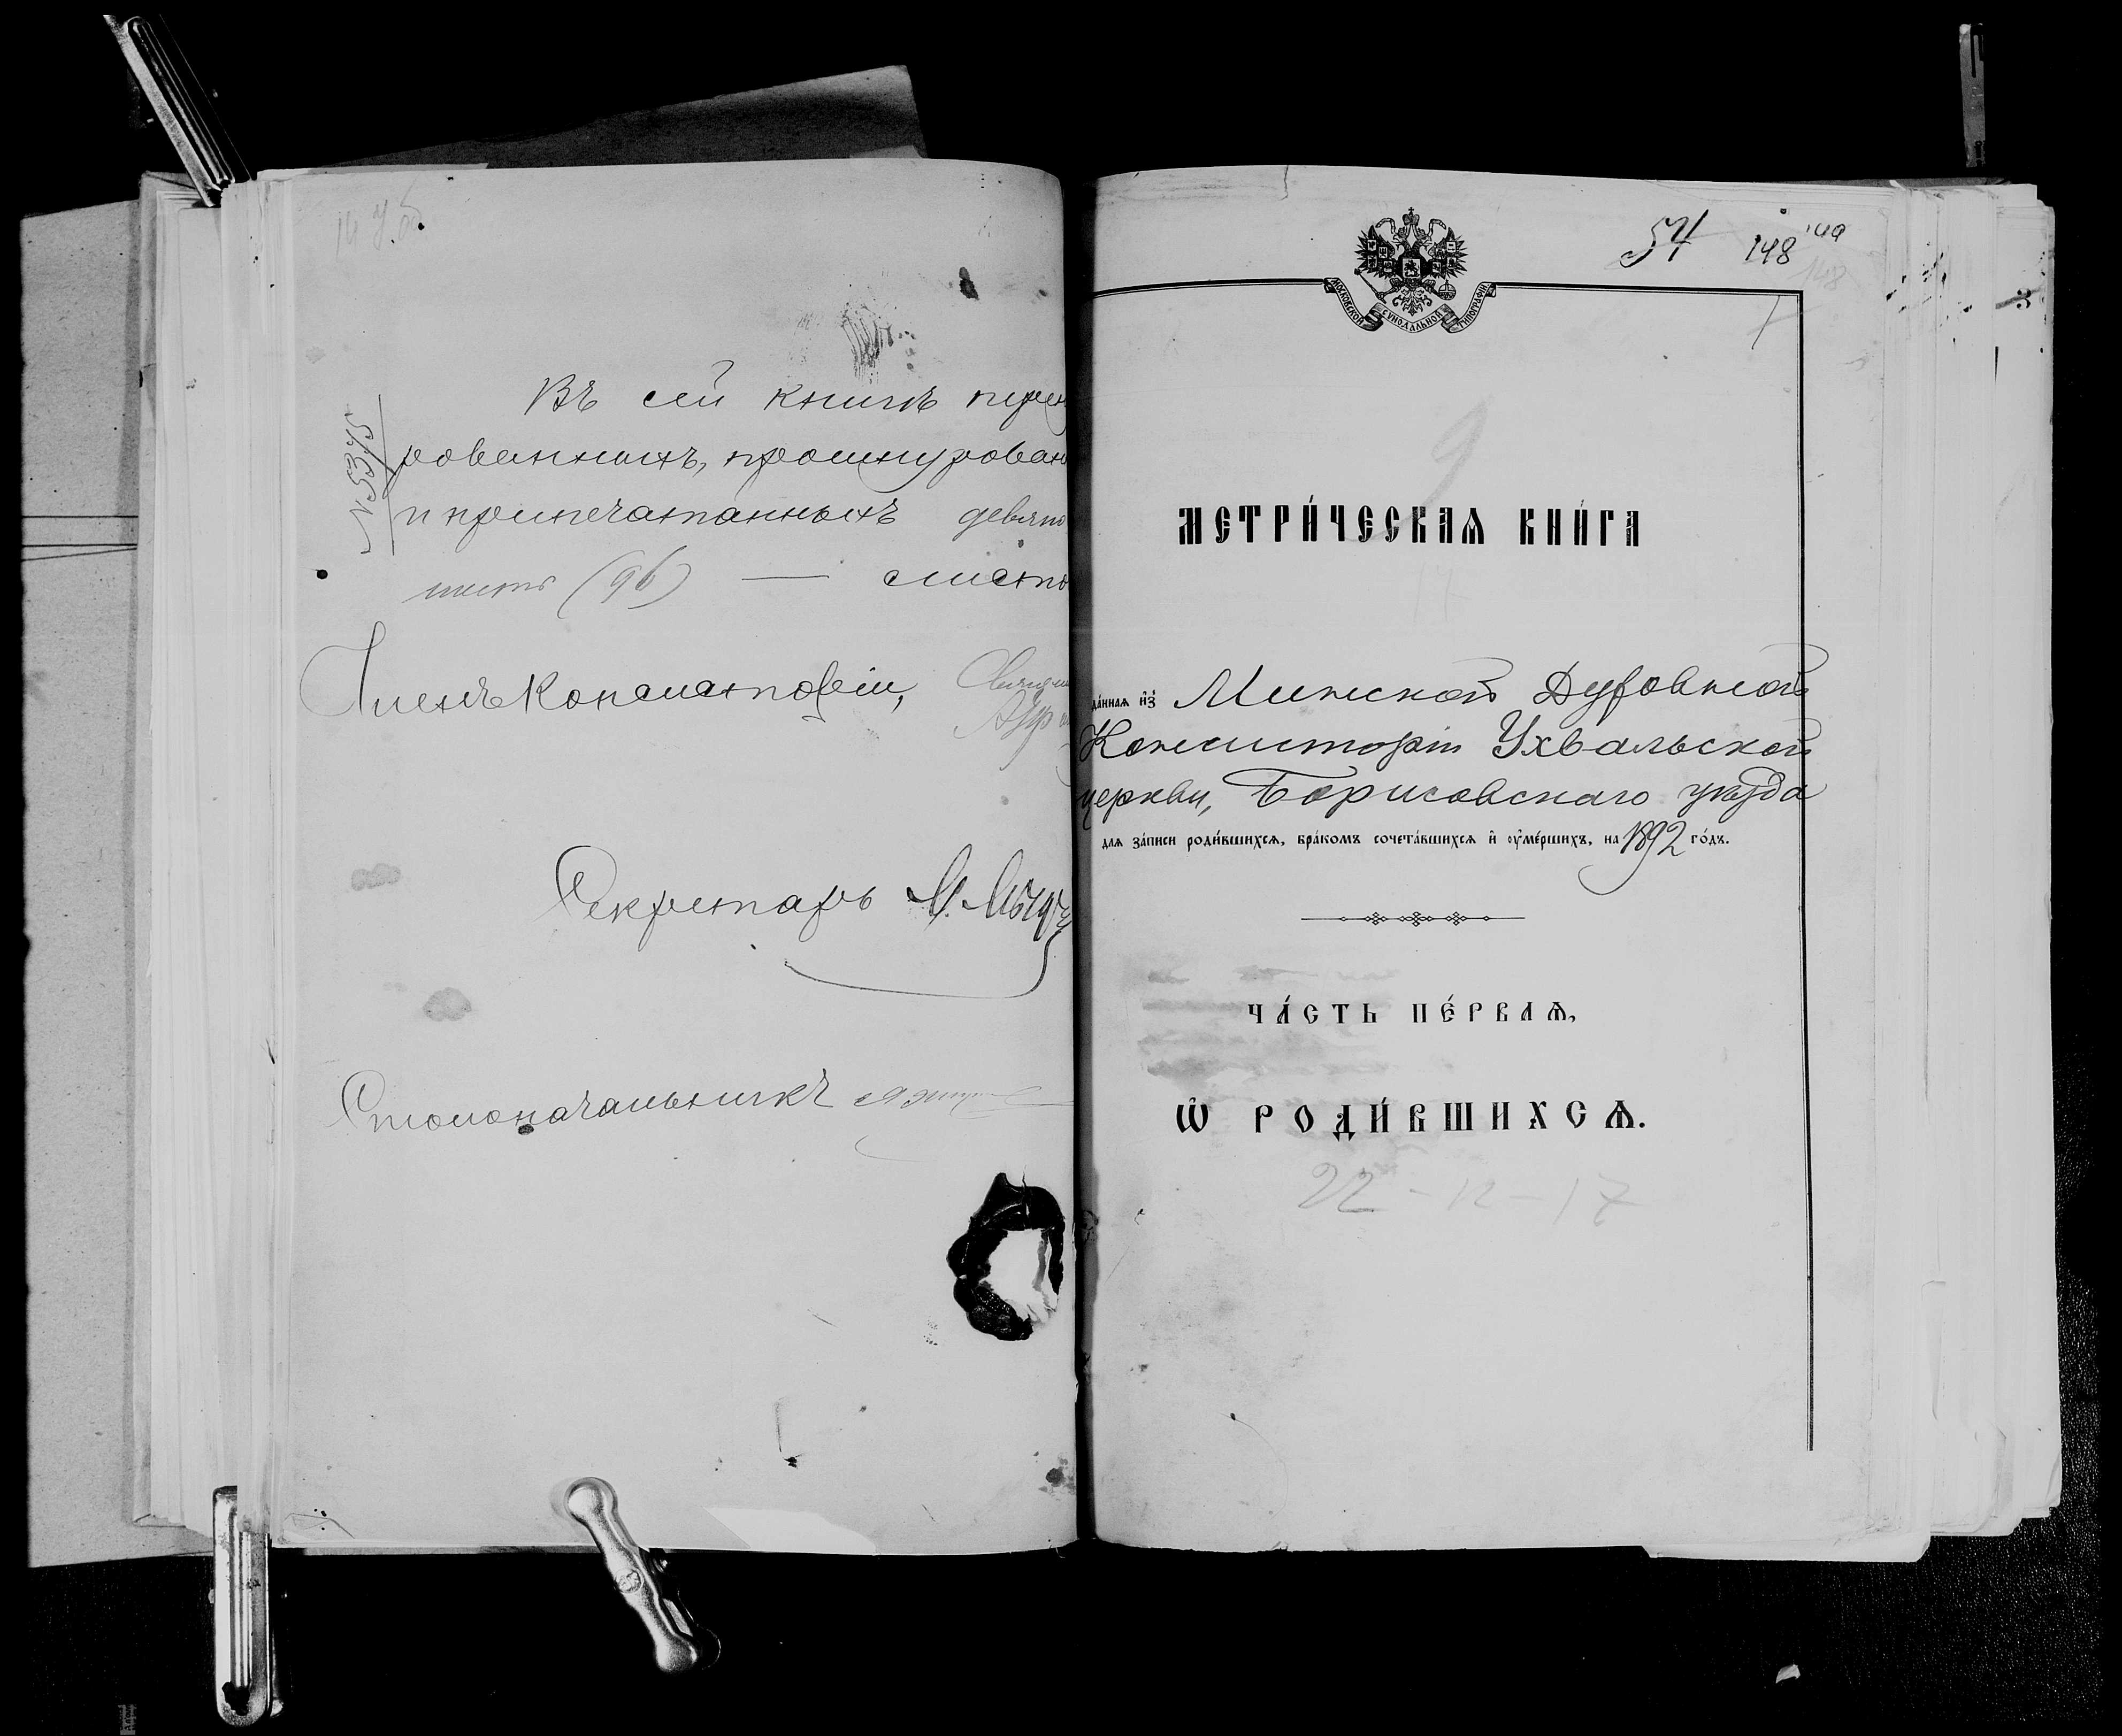 Въ сей книгѣ
рованныхъ, прошнурован
и припечатанныхъ девяно
шесть (96) — листо
№ 5375
Членъ Консисторіи,
Секретарь
Столоначальникъ
54 148
МОСКОВСКОЙ СѴНОДАЛЬНОЙ ТИПОГРАФІИ
9
МЕТРИ́ЧЕСКАѦ КНИ́ГА
да́ннаѧ и҆з̾ Минской Духовной
Консисторіи Ухвальской
церкви, Борисовскаго уѣзда
длѧ за́писи роди́вшихсѧ, бра́комъ сочета́вшихсѧ и҆ ᲂу҆ме́ршихъ, на 1892 го́дъ.
ЧА́СТЬ ПЕ́РВАѦ,
Ѡ҆ РОДИ́ВШИХСѦ.
22 - 12 - 17